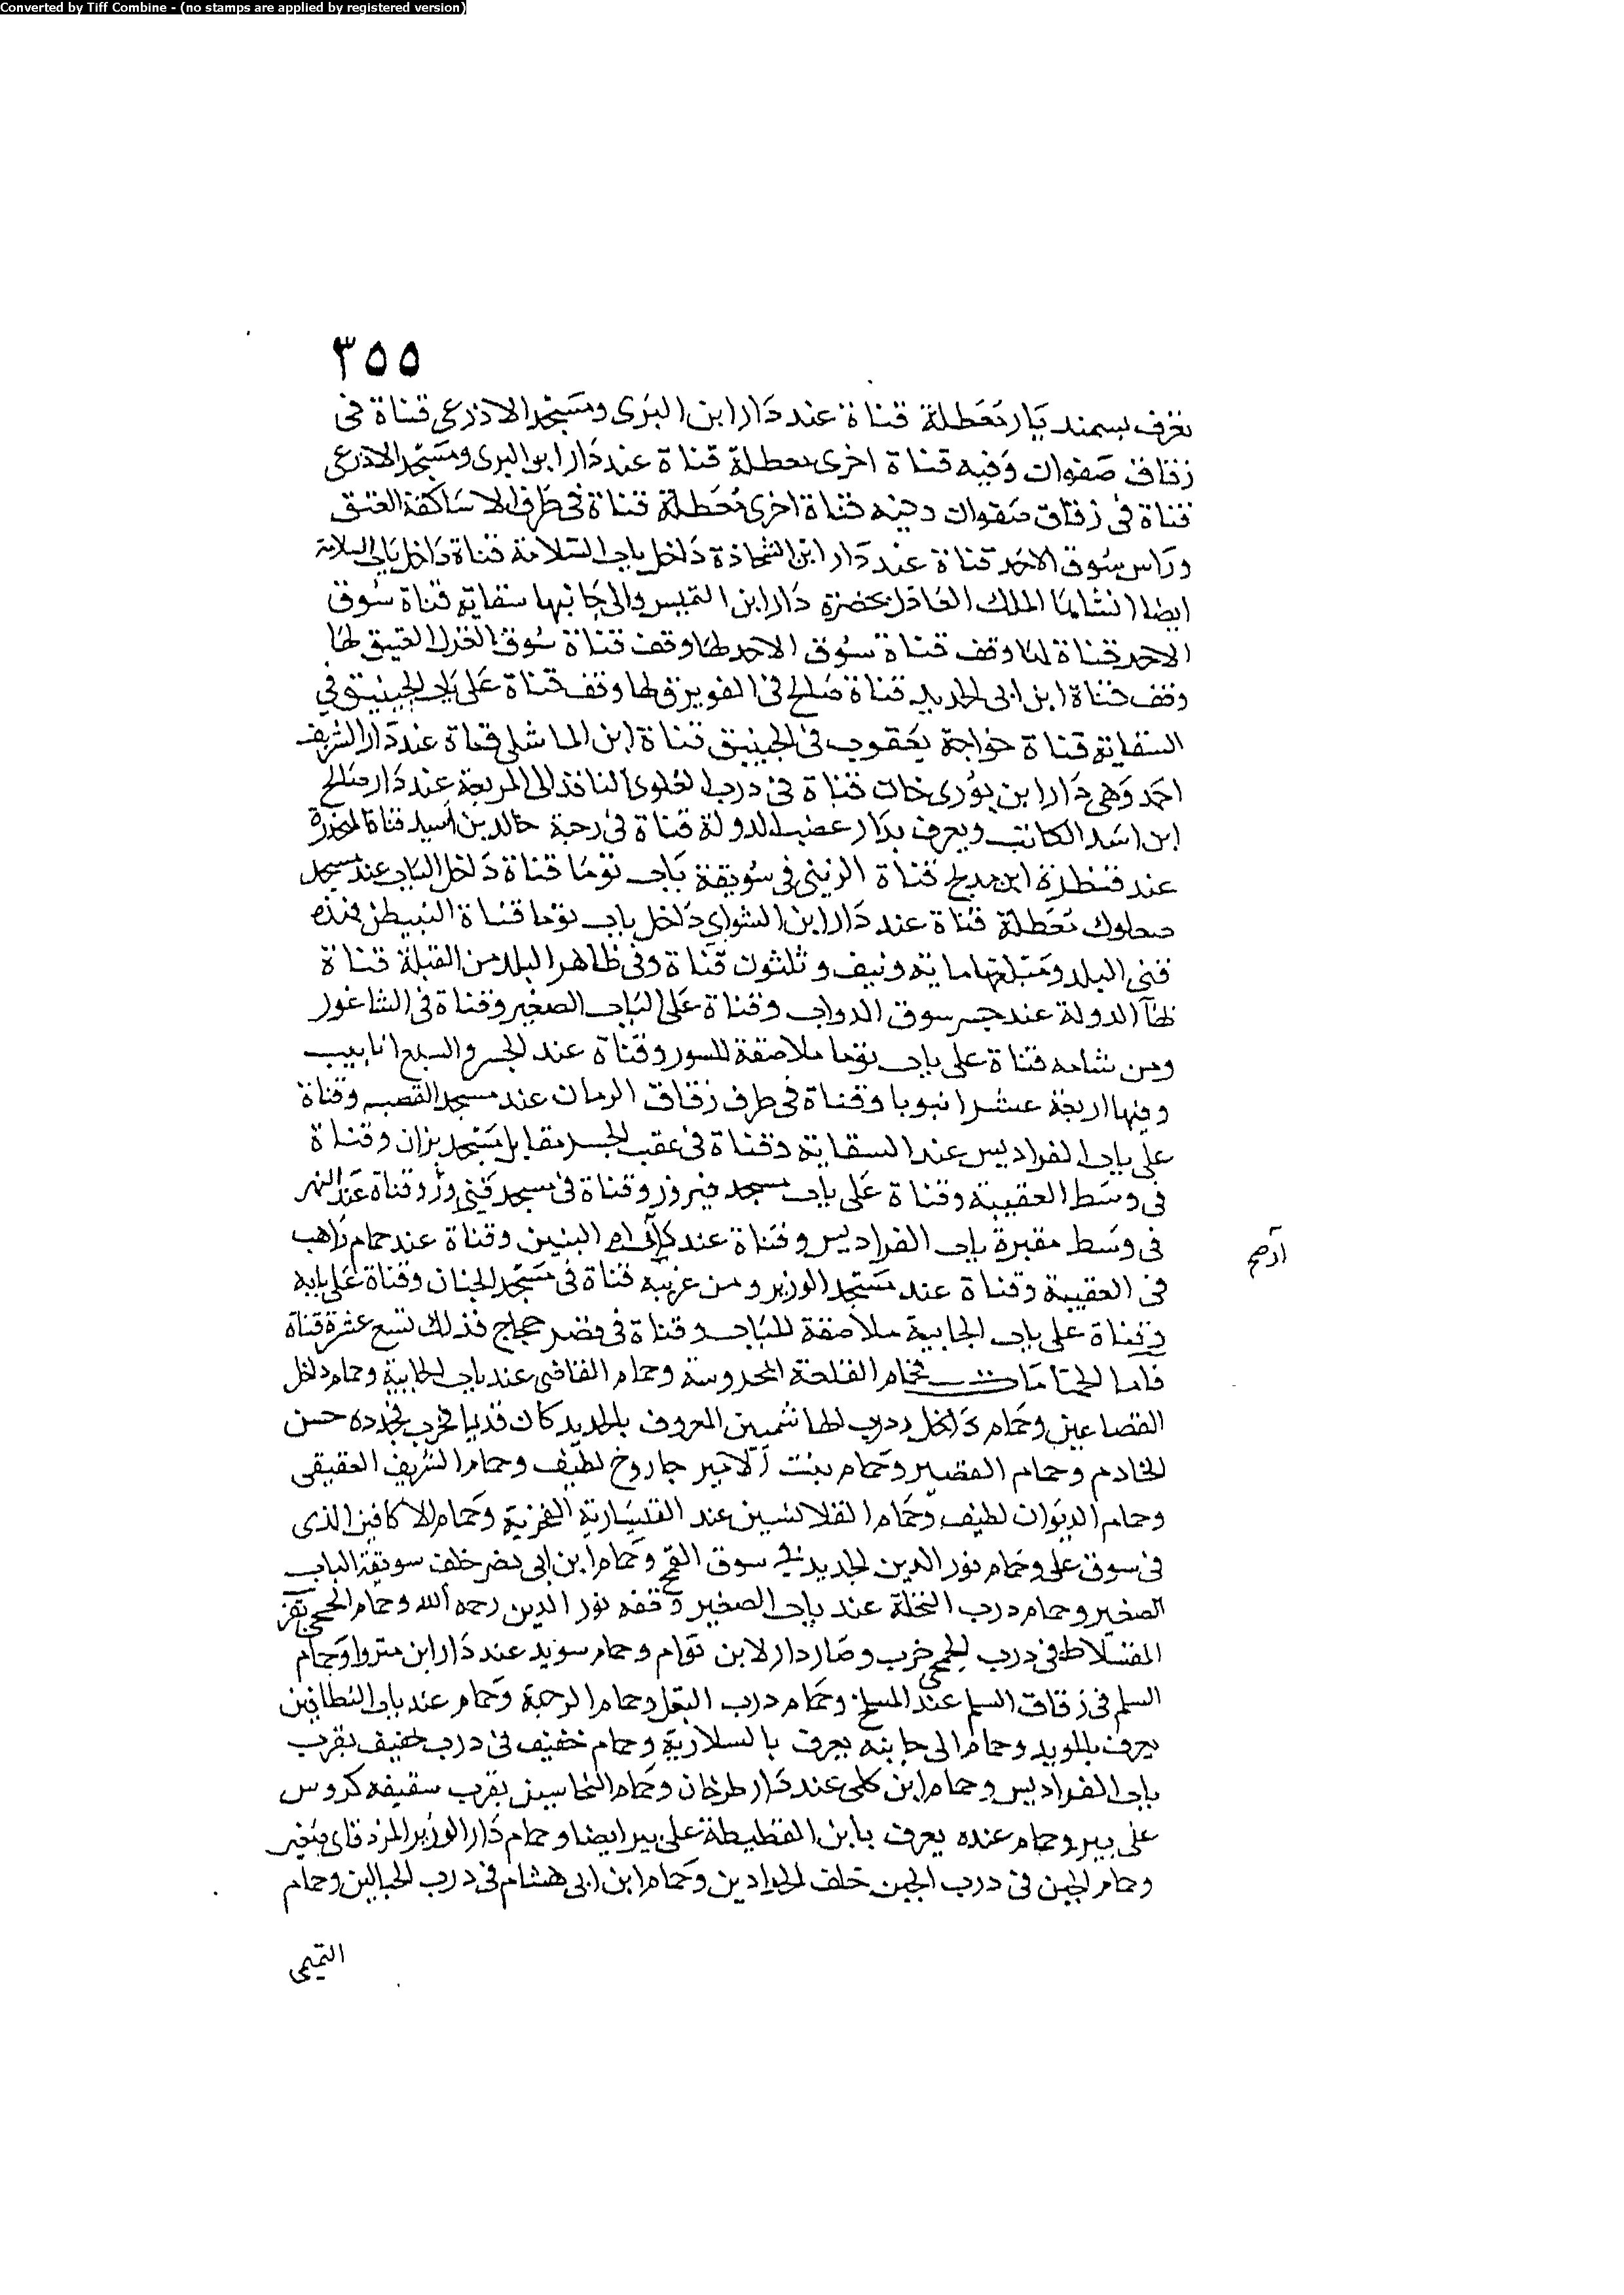 Converted by Tiff Combine - (no stamps are applied by registered version)
٣٥٥
تعرف بسمند يار تعطلة قناة عند دار ابن البرى ومسجد الاذرعى قناة فى
زقاق صفوان وفيه قناة اخرى معطلة قناة عند دار ابن البرى ومسجد الاذرعى
قناة فى زقاق صفوان وفيه قناة اخرى معطلة قناة فى طرف الاساكفة العتق
وراس سوق الاحد قناة عند دار ابن الشحاذة داخل باب السلامة قناة داخل باب السلامة
ايضا انشاها الملك العادل بحضرة دار ابن التميس والى جانبها سقاية قناة سوق
الاحد قناة لها وقف قناة سوق الاحد لها وقف قناة سوق الغزل العتيق لها
وقف قناة ابن ابى الحديد قناة صالح فى الفويرق لها وقف قناة على باب الجينيق فى
السقاية قناة خواجة يعقوب فى الجينيق قناة ابن الماشلى قناة عند دار الشريف
احمد وهى دار ابن بورى خان قناة فى درب العلوى النافذ الى المربعة عند دار صالح
ابن اسد الكاتب ويعرف بدار عضب الدولة قناة فى رحبة خالد بن اسيد قناة المجزرة
عند قنطرة ابن مدلج قناة الزينى فى سويقة باب توما قناة داخل الباب عند مسجد
صعلوك تعطلة قناة عند دار ابن الشواى داخل باب توما قناة النبيطن فهذه
قنى البلد ومبلغها مايه ونيف وثلثون قناة وفى ظاهر البلد من القبلة قناة
بهآ الدولة عند جسر سوق الدواب وقناة على الباب الصغير وقناة فى الشاغور
ومن شامه قناة على باب توما ملاصقة للسور وقناة عند الجسر والسبع انابيب
وفيها اربعة عشر انبوبا وقناة فى طرف زقاق الرمان عند مسجد القصب وقناة
على باب الفراديس عند السقاية وقناة فى عقب الجسر مقابل مسجد بزان وقناة
فى وسط العقيبة وقناة على باب مسجد فيروز وقناة فى مسجد وقناة عند النهر
فى وسط مقبرة باب الفراديس وقناة عند ام البنين وقناة عند حمام زاهب
فى العقيبة وقناة عند مسجد الوزير ومن غربيه قناة فى مسجد الجنان وقناة على بابه
وقناة على باب الجابية ملاصقة للباب وقناة فى قصر حجاج فذلك تسع عشرة قناة
فاما الحمامات فحمام القلعة المحروسة وحمام القاضى عند باب الجابية وحمام داخل
القصاعين وحمام داخل درب الهاشميين المعروف بالجديد كان قديما فخرب فجدده حسن
الخادم وحمام القصير وحمام بنت الامير جاروخ لطيف وحمام الشريف العقيقى
وحمام الديوان لطيف وحمام القلانسيين عند القيسارية الفخرية وحمام الاكافين الذى
فى سوق على وحمام نور الدين الجديد فى سوق القمح وحمام ابن ابى نصر خلف سويقة الباب
الصغير وحمام درب النخلة عند باب الصغير وقفه نور الدين رحمه الله وحمام الجمحى بقرب
المقسلاط فى درب الجمحى خرب وصار دار لابن قوام وحمام سويد عند دار ابن متروا وحمام
السلم فى زقاق السلم عند المسلخ وحمام درب البقل وحمام الرحبة وحمام عند باب النطافيين
يعرف بالمويد وحمام الى جانبه يعرف بالسلارية وحمام خفيف فى درب خفيف بقرب
باب الفراديس وحمام ابن كلى عند دار طرخان وحمام النحاسين بقرب سقيفه كروس
على بير وحمام عنده يعرف بابن القطيطة على بير ايضا وحمام دار الوزير المزدقانى صغير
وحمام الجبن فى درب الجبن خلف الحدادين وحمام ابن ابى هشام فى درب الحبالين وحمام
التميمى